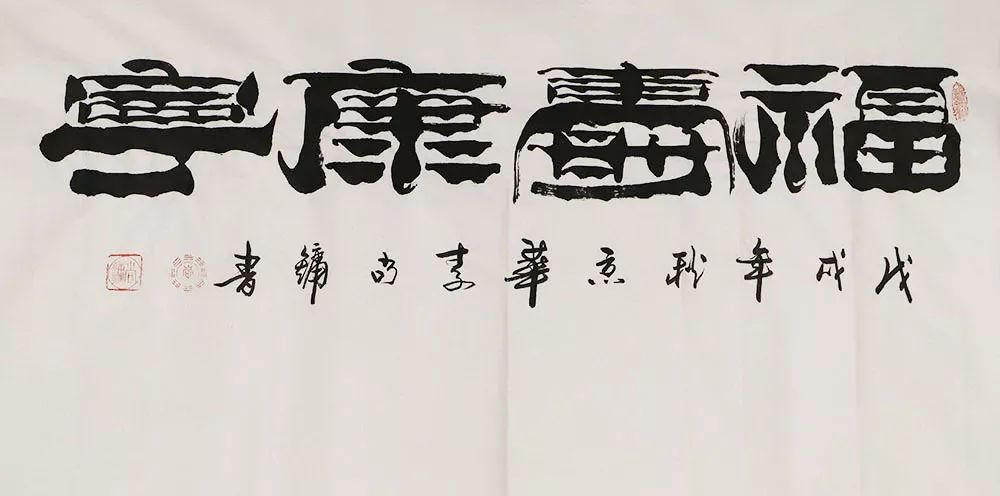 福寿康寧
戊戌年秋京華李尚鏞書